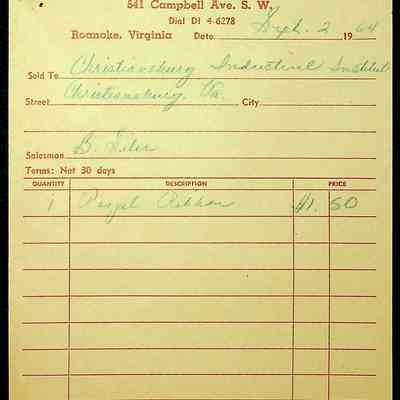 541 Campbell Ave. S. W.
Dial DI 4-6278
Roanoke, Virginia Date Sept. 2 1964
Sold To Christiansburg Industrial Institute
Street Christiansburg, Va. City
Salesman B. Siler
Terms: Net 30 days
QUANTITY DESCRIPTION PRICE
1 Royal Ribbon $1.50